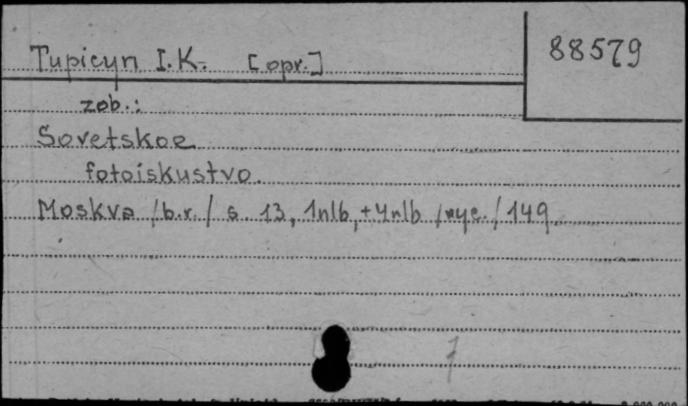 88579
Tupicyn I.K. [opr.]
zob.:
Sovetskoe
fotoiskustvo.
Moskva /b.r./ s. 13, 1nlb, +4nlb /ryc./ 149